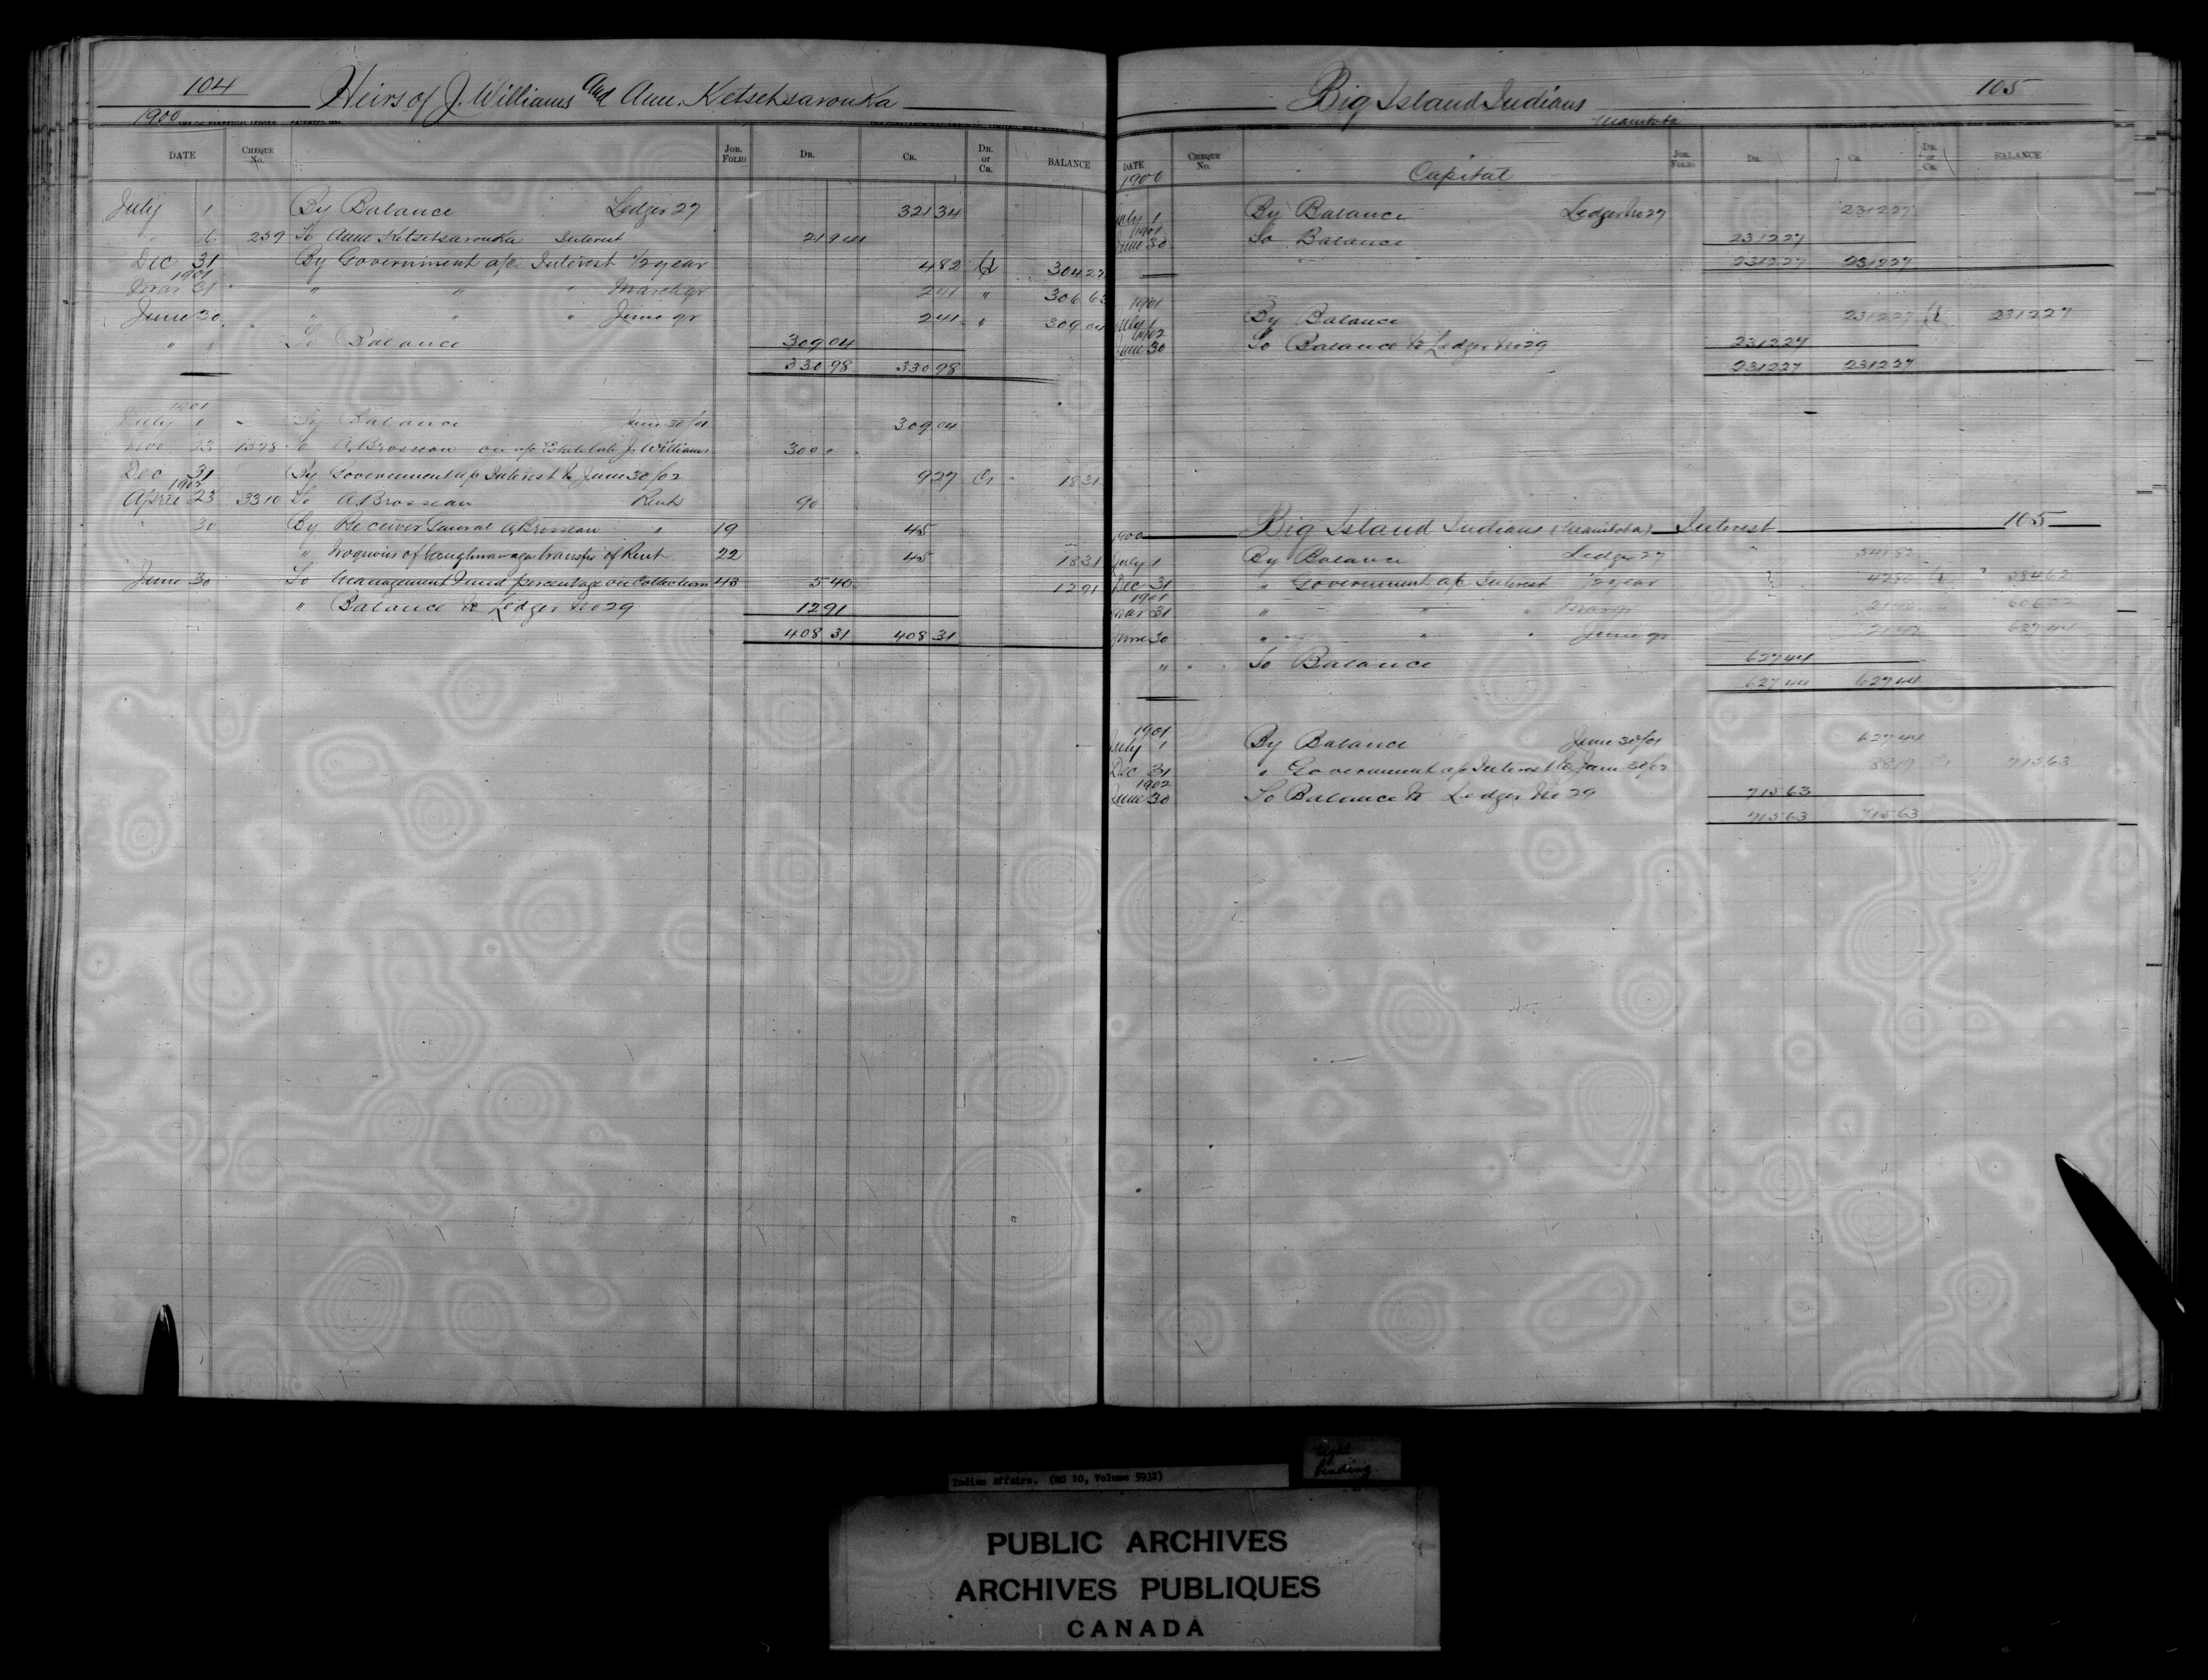 104
Heirs of J. Williams and Ann. Ketsetsaronka
1900
DATE CHEQUE No. JOR. FOLIO DR. CR. DR. or CR. BALANCE
July 1 By Balance Ledger 27 321 34
" 6 259 To Anne Ketsetsaronka Interest 21 94
Dec 31 By Government a/c Interest 1/2 year 4 82 Cr 304 22
1901
Mar 31 " " " March qr 2 41 " 306 63
June 30 " " " June qr 2 41 " 309 04
" " To Balance 309 04
330 98 330 98
1901
July 1 By Balance June 30/01 309 04
Nov 23 1578 To A. Brosseau on a/c Estate late J. Williams 300
Dec 31 By Government a/c Interest to June 30/02 9 27 Cr 18 31
1902
April 23 3310 To A Brosseau Rent 90
" 30 By Receiver General A Brosseau " 19 45
" Iroquois of Caughnawaga transfer of Rent 22 45 18 31
June 30 To Management Fund percentage on Collections 43 5 40 12 91
" Balance to Ledger No 29 12 91
408 31 408 31
Big Island Indians 105
Manitoba
DATE CHEQUE No. JOR. FOLIO DR. CR. DR. or CR. BALANCE
1900 Capital
July 1 By Balance Ledger No 27 2312 27
1901
June 30 To Balance 2312 27
2312 27 2312 27
1901
July 1 By Balance 2312 27 Cr 2312 27
1902
June 30 To Balance to Ledger No 29 2312 27
2312 27 2312 27
1900 Big Island Indians (Manitoba) Interest 105
July 1 By Balance Ledger 27 541 82
Dec 31 " Government a/c Interest 1/2 year 42 80 Cr 584 62
1901
Mar 31 " " " Mar qr 21 40 606 02
June 30 " " " June qr 21 42 627 44
" To Balance 627 44
627 44 627 44
1901
July 1 By Balance June 30/01 627 44
Dec 31 " Government a/c Interest to June 30/02 88 19 Cr 715 63
1902
June 30 To Balance to Ledger No 29 715 63
715 63 715 63
Indian Affairs. (RG 10, Volume 5932)
tight binding
PUBLIC ARCHIVES
ARCHIVES PUBLIQUES
CANADA